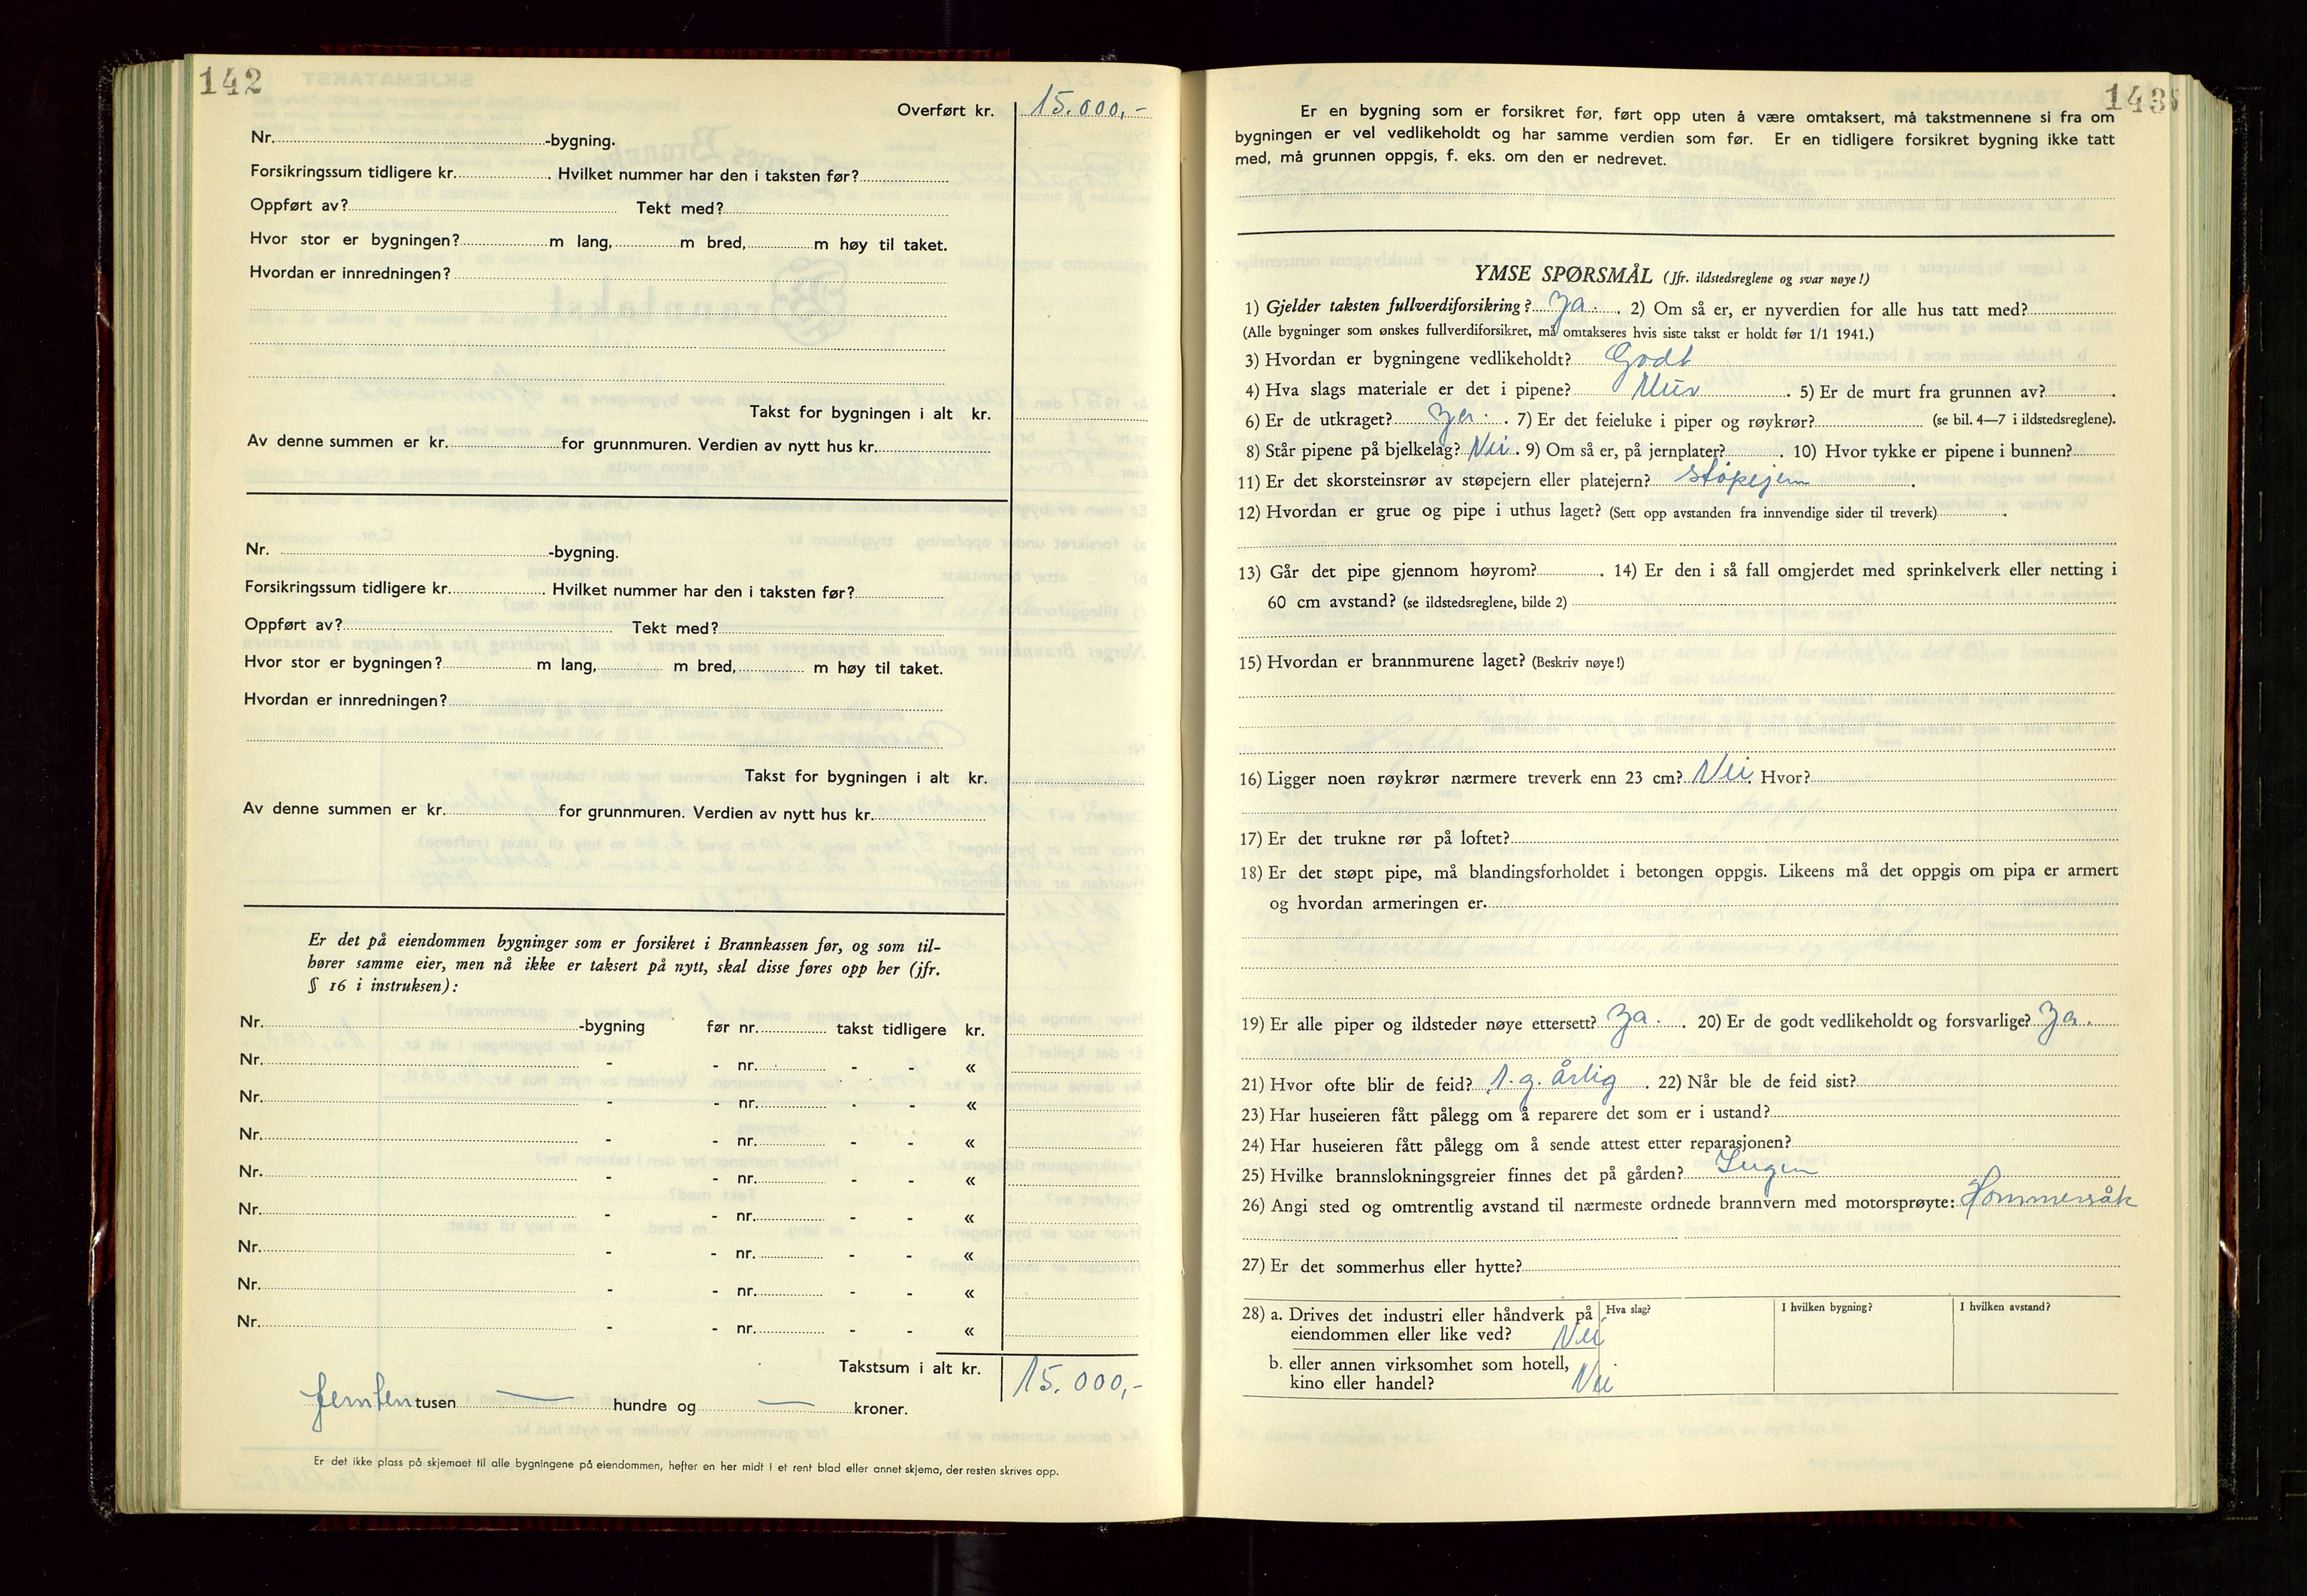 142
Overført kr. 15.000,-
Nr. -bygning.
Forsikringssum tidligere kr. . Hvilket nummer har den i taksten før?
Oppført av? Tekt med?
Hvor stor er bygningen? m lang, m bred, m høy til taket.
Hvordan er innredningen?
Takst for bygningen i alt kr.
Av denne summen er kr. for grunnmuren. Verdien av nytt hus kr.
Nr. -bygning.
Forsikringssum tidligere kr. . Hvilket nummer har den i taksten før?
Oppført av? Tekt med?
Hvor stor er bygningen? m lang, m bred, m høy til taket.
Hvordan er innredningen?
Takst for bygningen i alt kr.
Av denne summen er kr. for grunnmuren. Verdien av nytt hus kr.
Er det på eiendommen bygninger som er forsikret i Brannkassen før, og som til-
hører samme eier, men nå ikke er taksert på nytt, skal disse føres opp her (jfr.
§ 16 i instruksen):
Nr. -bygning før nr. takst tidligere kr.
Nr. - - nr. - - «
Nr. - - nr. - - «
Nr. - - nr. - - «
Nr. - - nr. - - «
Nr. - - nr. - - «
Nr. - - nr. - - «
Nr. - - nr. - - «
Nr. - - nr. - - «
Takstsum i alt kr. 15.000,-
femten tusen — hundre og — kroner.
Er det ikke plass på skjemaet til alle bygningene på eiendommen, hefter en her midt i et rent blad eller annet skjema, der resten skrives opp.
143
Er en bygning som er forsikret før, ført opp uten å være omtaksert, må takstmennene si fra om
bygningen er vel vedlikeholdt og har samme verdien som før. Er en tidligere forsikret bygning ikke tatt
med, må grunnen oppgis, f. eks. om den er nedrevet.
YMSE SPØRSMÅL (Jfr. ildstedsreglene og svar nøye!)
1) Gjelder taksten fullverdiforsikring? Ja. . 2) Om så er, er nyverdien for alle hus tatt med?
(Alle bygninger som ønskes fullverdiforsikret, må omtakseres hvis siste takst er holdt før 1/1 1941.)
3) Hvordan er bygningene vedlikeholdt? Godt
4) Hva slags materiale er det i pipene? Mur . 5) Er de murt fra grunnen av? .
6) Er de utkraget? Ja . 7) Er det feieluke i piper og røykrør? (se bil. 4—7 i ildstedsreglene).
8) Står pipene på bjelkelag? Nei . 9) Om så er, på jernplater? . 10) Hvor tykke er pipene i bunnen?
11) Er det skorsteinsrør av støpejern eller platejern? støpejern .
12) Hvordan er grue og pipe i uthus laget? (Sett opp avstanden fra innvendige sider til treverk) .
13) Går det pipe gjennom høyrom? . 14) Er den i så fall omgjerdet med sprinkelverk eller netting i
60 cm avstand? (se ildstedsreglene, bilde 2)
15) Hvordan er brannmurene laget? (Beskriv nøye!)
16) Ligger noen røykrør nærmere treverk enn 23 cm? Nei. Hvor?
17) Er det trukne rør på loftet?
18) Er det støpt pipe, må blandingsforholdet i betongen oppgis. Likeens må det oppgis om pipa er armert
og hvordan armeringen er.
19) Er alle piper og ildsteder nøye ettersett? Ja. . 20) Er de godt vedlikeholdt og forsvarlige? Ja.
21) Hvor ofte blir de feid? 1. g. årlig . 22) Når ble de feid sist?
23) Har huseieren fått pålegg om å reparere det som er i ustand?
24) Har huseieren fått pålegg om å sende attest etter reparasjonen?
25) Hvilke brannslokningsgreier finnes det på gården? Ingen
26) Angi sted og omtrentlig avstand til nærmeste ordnede brannvern med motorsprøyte: Hommersåk
27) Er det sommerhus eller hytte?
28) a. Drives det industri eller håndverk på Hva slag? I hvilken bygning? I hvilken avstand?
eiendommen eller like ved? Nei
b. eller annen virksomhet som hotell,
kino eller handel? Nei